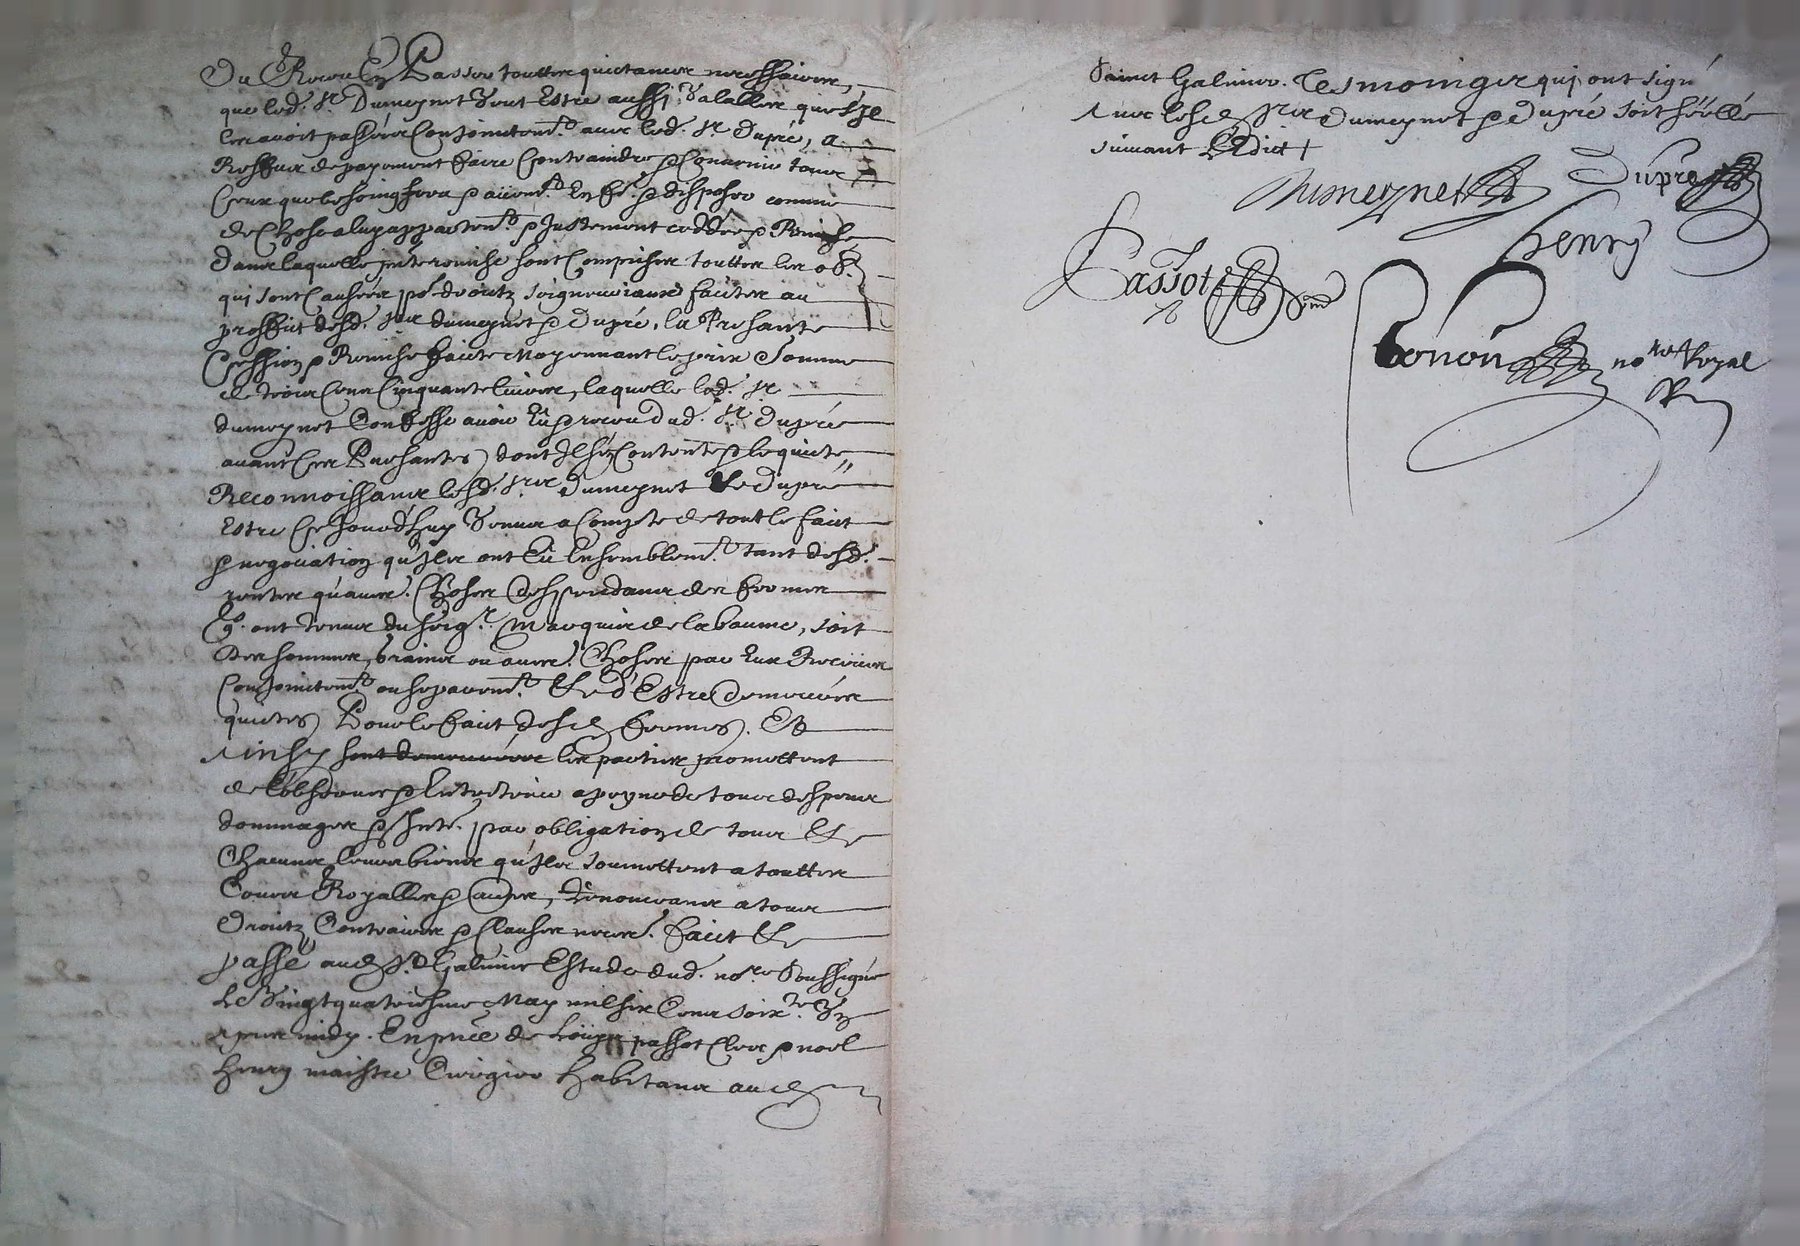 Du Receu En Passer touttes quictances necessaires,
que led. Sr Dumeynet Veut Estre aussy Valables que s'Il
les avoit passées Conjoinctemt. avec led. Sr Dupré, a
Reffus de payement faire Contraindre & Convenir tous
Ceux que besoing sera & disposer comme
de Chose a luy appartent. & Justement ceddée & Remise
dans laquelle pnte remise sont Comprises touttes les ob.
qui sont Causées de droictz seigneuriaux faictes au
proffict desd. Srs dumeynet & Dupré, la Presante
Cession & Remise faicte Moyennant le prix & Somme
de trois Cens Cinquante livres, laquelle led. Sr
dumeynet Confesse avoir Eü & receu dud. Sr Dupré
avant Ces Presantes dont Il s'est Contenté & le quicte,
Reconnoissans lesd. Srs Dumeynet & Dupré
Estre Ce Jourd'huy Venus a Compte de tout le faict
& negociation qu'Ilz ont Eü Ensemblemt. tant desd.
rentes qu'autres Choses Despendans des fermes
qz. ont tenues du seigr. Marquis de la baume, soit
des sommes, graines ou autres Choses par Eux Receües
Conjoinctemt. ou separemt. & d'Estre Demeurés
quictes Pour le faict desd fermes. Et
ainsy sont demeurées les parties promettent
de l'observer & Entretenir a peyne de tous despens
dommages & Intz. par obligation de tous &
Chacuns leurs biens qu'Ilz soumettent a touttes
Cours Royalles & autres, Renonceans a tous
Droictz Contraires & Clauses necres. faict &
passé aud St Galmier Estude dud. nore Soussigné
Le Vingt quatriesme May mil six Cens soixte.
apres midy. En pnce de Loüys passot Clerc & noel
henry maistre Cirurgien habitans aud
Sainct Galmier. Tesmoings qui ont signé
Avec lesd Srs Dumeynet & Dupré soit séellé
suivant l'Edict +
Dumeynet Dupré
henry
Passot
Ronon nore Royal